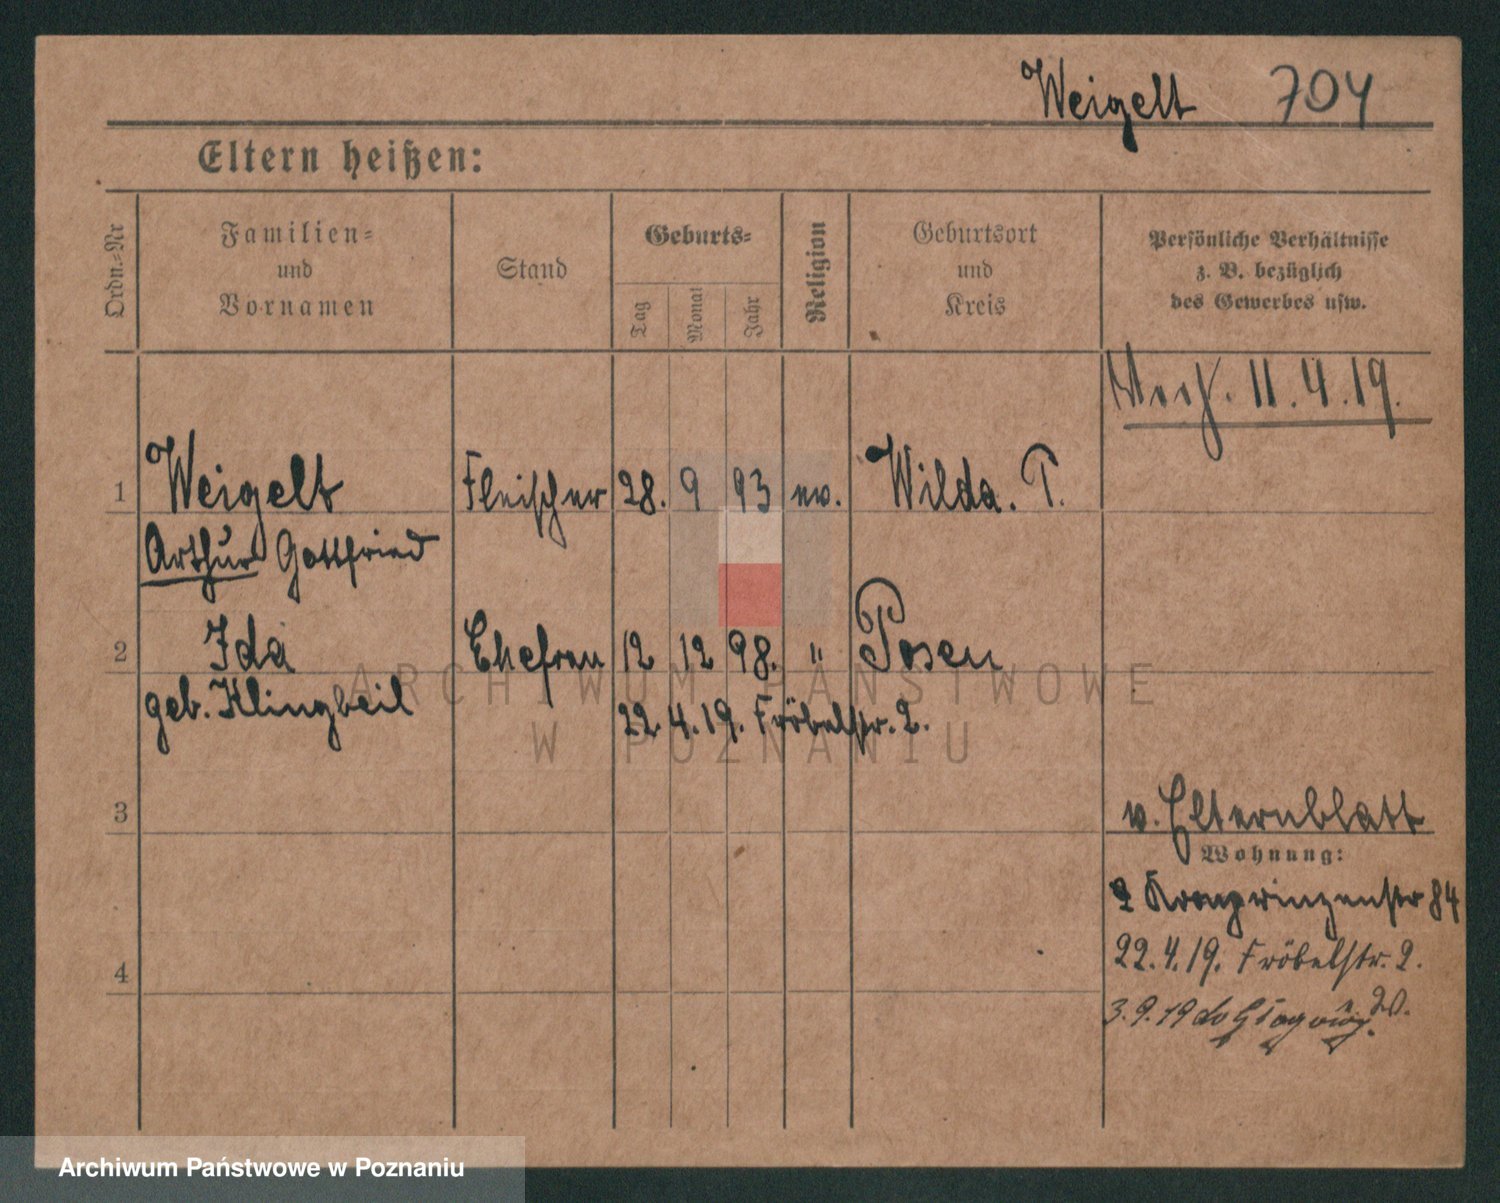 Weigelt 704
Eltern heißen:
Ordn.-Nr
Familien-
und
Vornamen
Stand
Geburts-
Tag
Monat
Jahr
Religion
Geburtsort
und
Kreis
Persönliche Verhältnisse
z. B. bezüglich
des Gewerbes usw.
11.4.19.
1 Weigelt Fleischer 28. 9 93 ev. Wilda. P.
Arthur Gottfried
2 Ida Ehefrau 12 12 98. " Posen
geb. Klingbeil
22.4.19. Fröbelstr. 2.
3
v. Elternblatt
Wohnung:
Kronprinzenstr 84
22.4.19. Fröbelstr. 2.
4
3.9.19
ARCHIWUM PAŃSTWOWE
W POZNANIU
Archiwum Państwowe w Poznaniu